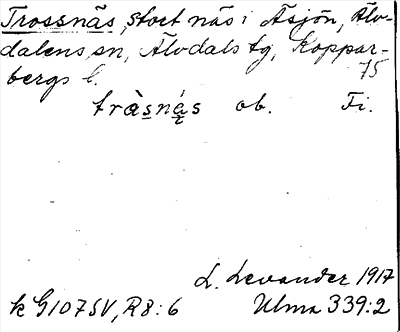 Trossnäs, stort näs i Åsjön, Älv-
dalens sn, Älvdals tg, Koppar-
bergs l. 75
tràsnás ob. Fi.
L. Levander 1917
k G1075V, R8:6 Ulma 339:2